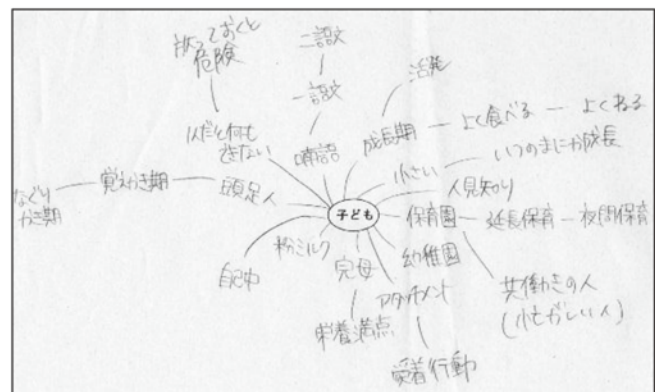 放っておくと
危険
1人だと何も
できない
二語文
一語文
喃語
活発
成長期
よく食べる
よくねる
小さい
いつのまにか成長
人見知り
子ども
保育園
延長保育
夜間保育
共働きの人
(忙がしい人)
幼稚園
アタッチメント
愛着行動
完母
栄養満点
粉ミルク
自己中
頭足人
なぐり
がき期